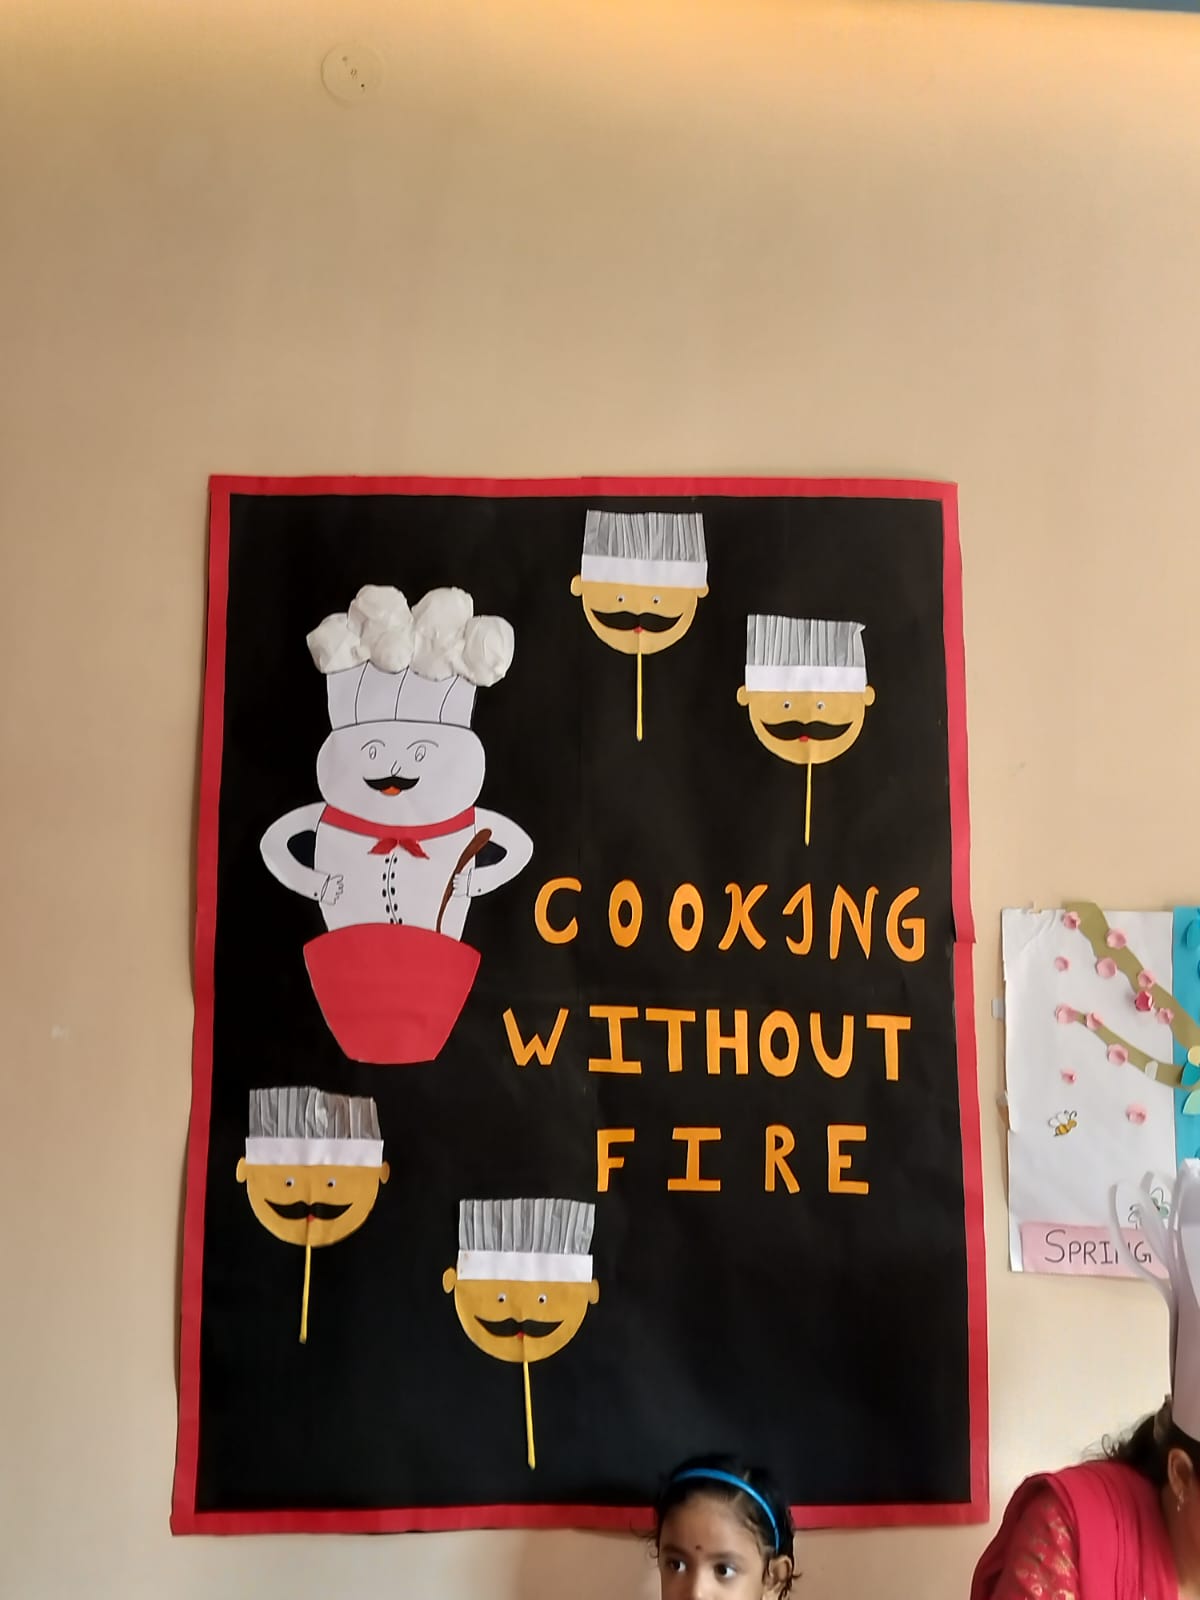 COOKING
WITHOUT
FIRE
SPRING